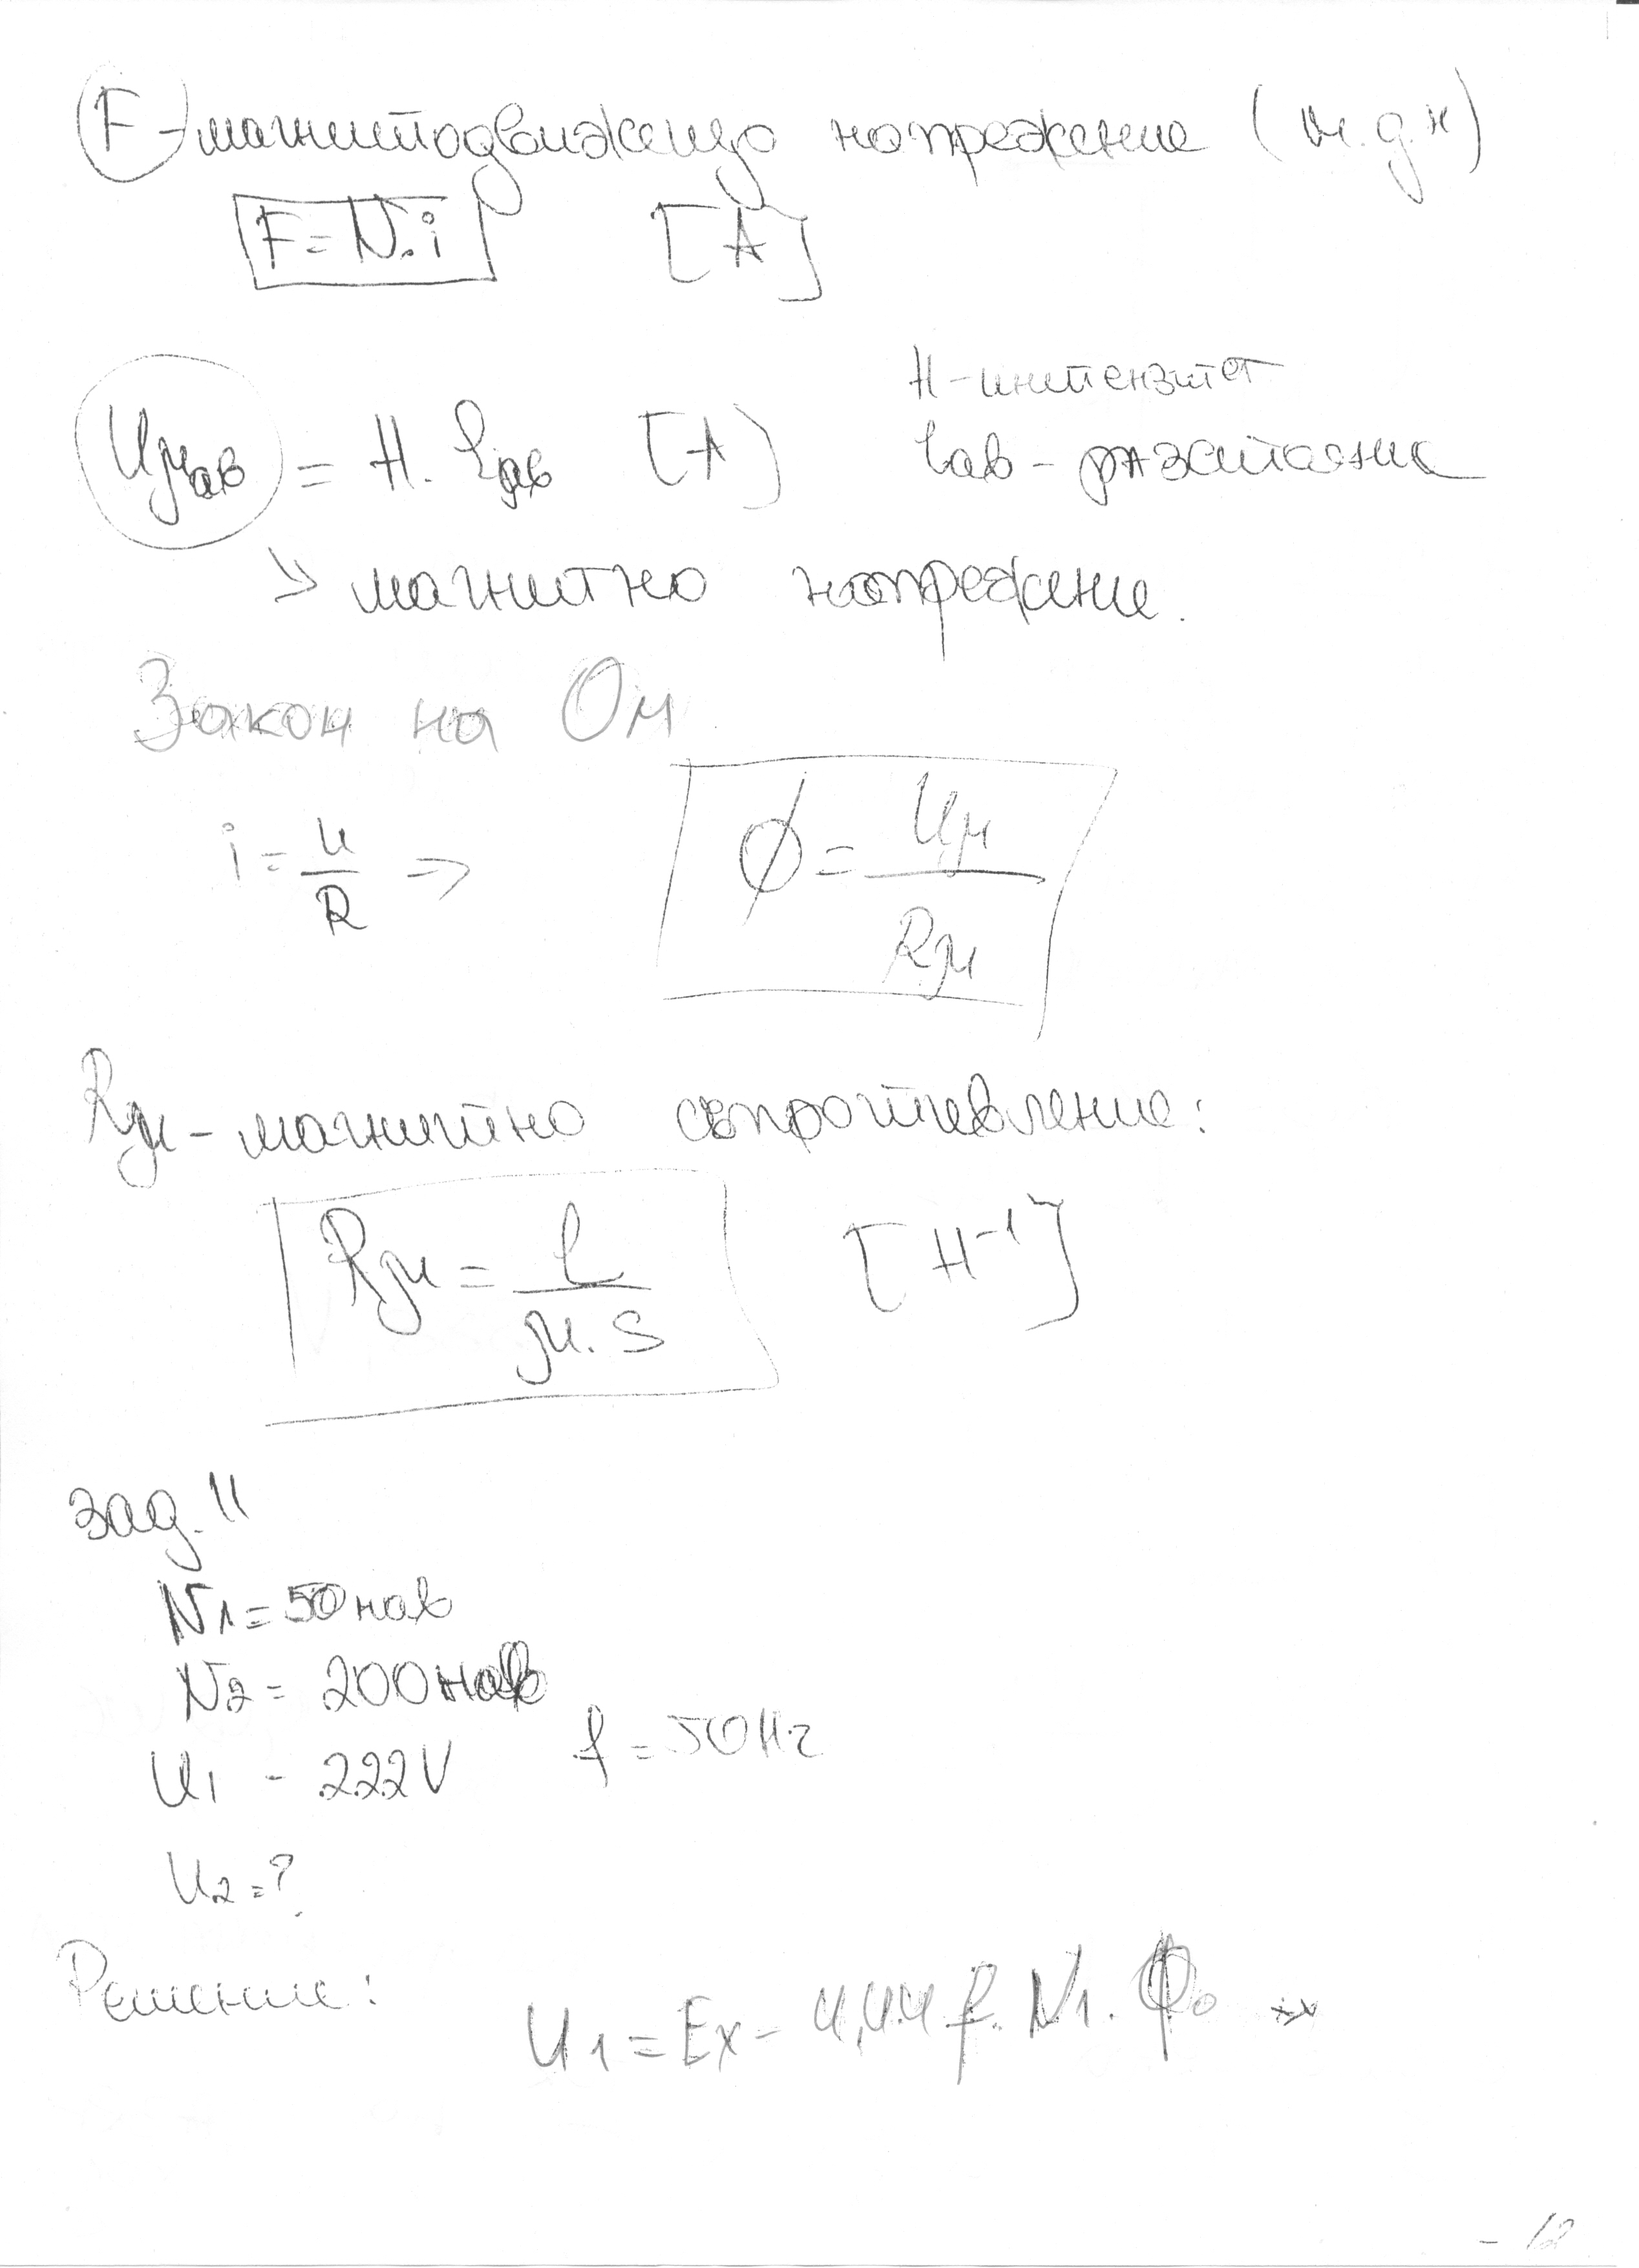 F - магнитодвижещо напрежение (м.д.н)
F = N.i [A]
H - интензитет
Uμав = H. lав [A]
lав - разстояние
> магнитно напрежение.
Закон на Ом
i = u/R => Φ = Uμ/Rμ
Rμ - магнитно съпротивление:
Rμ = l/μ.s [H⁻¹]
зад. 11
N1 = 50 нав
N2 = 200 нав
U1 - 222V f = 50Hz
U2 = ?
Решение:
U1 = Ex - 4,44 f. N1. Φ0
- 12